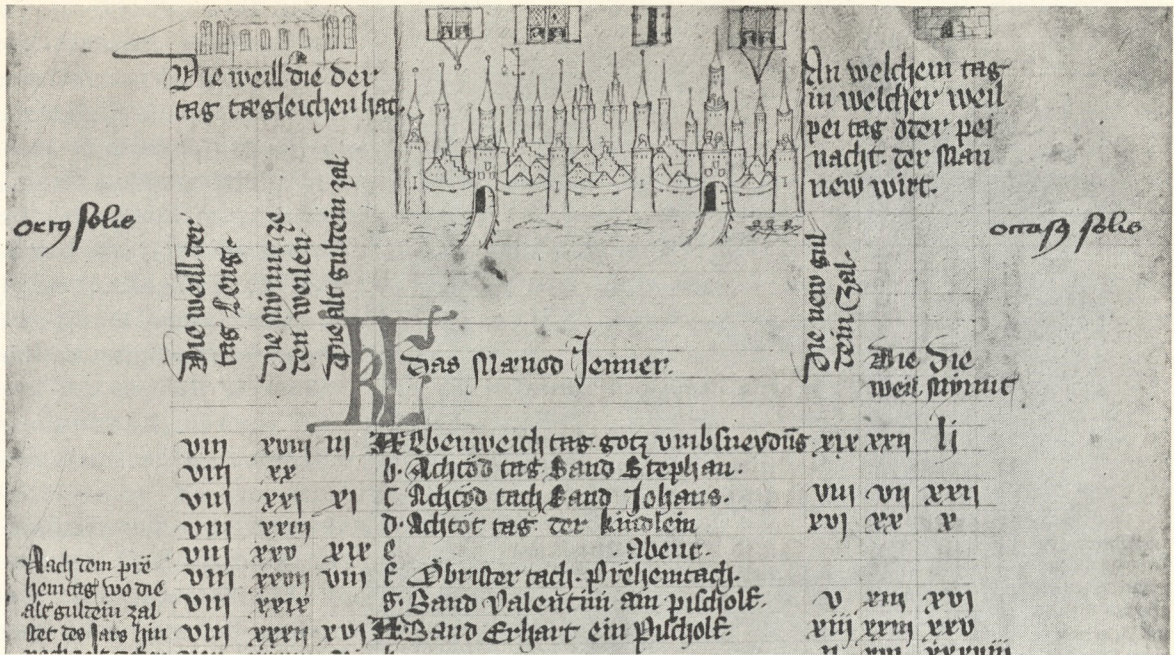 Die weill die der
tag tægleichen hat.
An welchem tag
in welcher weil
pei tag oder pei
nacht der Man
new wirt.
ortus solis
occasus solis
Die weill der
tag Leng.
Die Mynut ze
den weilen
Die alt gultein zal
KL Das Mænod Jenner.
Die new gul
tein Zal.
Die Die
weil Mynut
viii xviii iii A Ebenweich tag gotz xix xxii li
viii xx b. Achtod tag Sand Stephan.
viii xxi xi c Achtod tach Sand Johans. viii vii xxii
viii xxiii d. Achtot tag der kindlein xvi xx x
viii xxv xix e Abent.
viii xxvii viii f Obrister tach. Prehemtach.
viii xxix g. Sand Valentin ain pischolf. v xiii xvi
viii xxxii xvi A Sand Erhart ein Pischolf. xiii xxiii xxv
Nach dem pre
hemtag wo die
alt gultein zal
stet des Jars hin